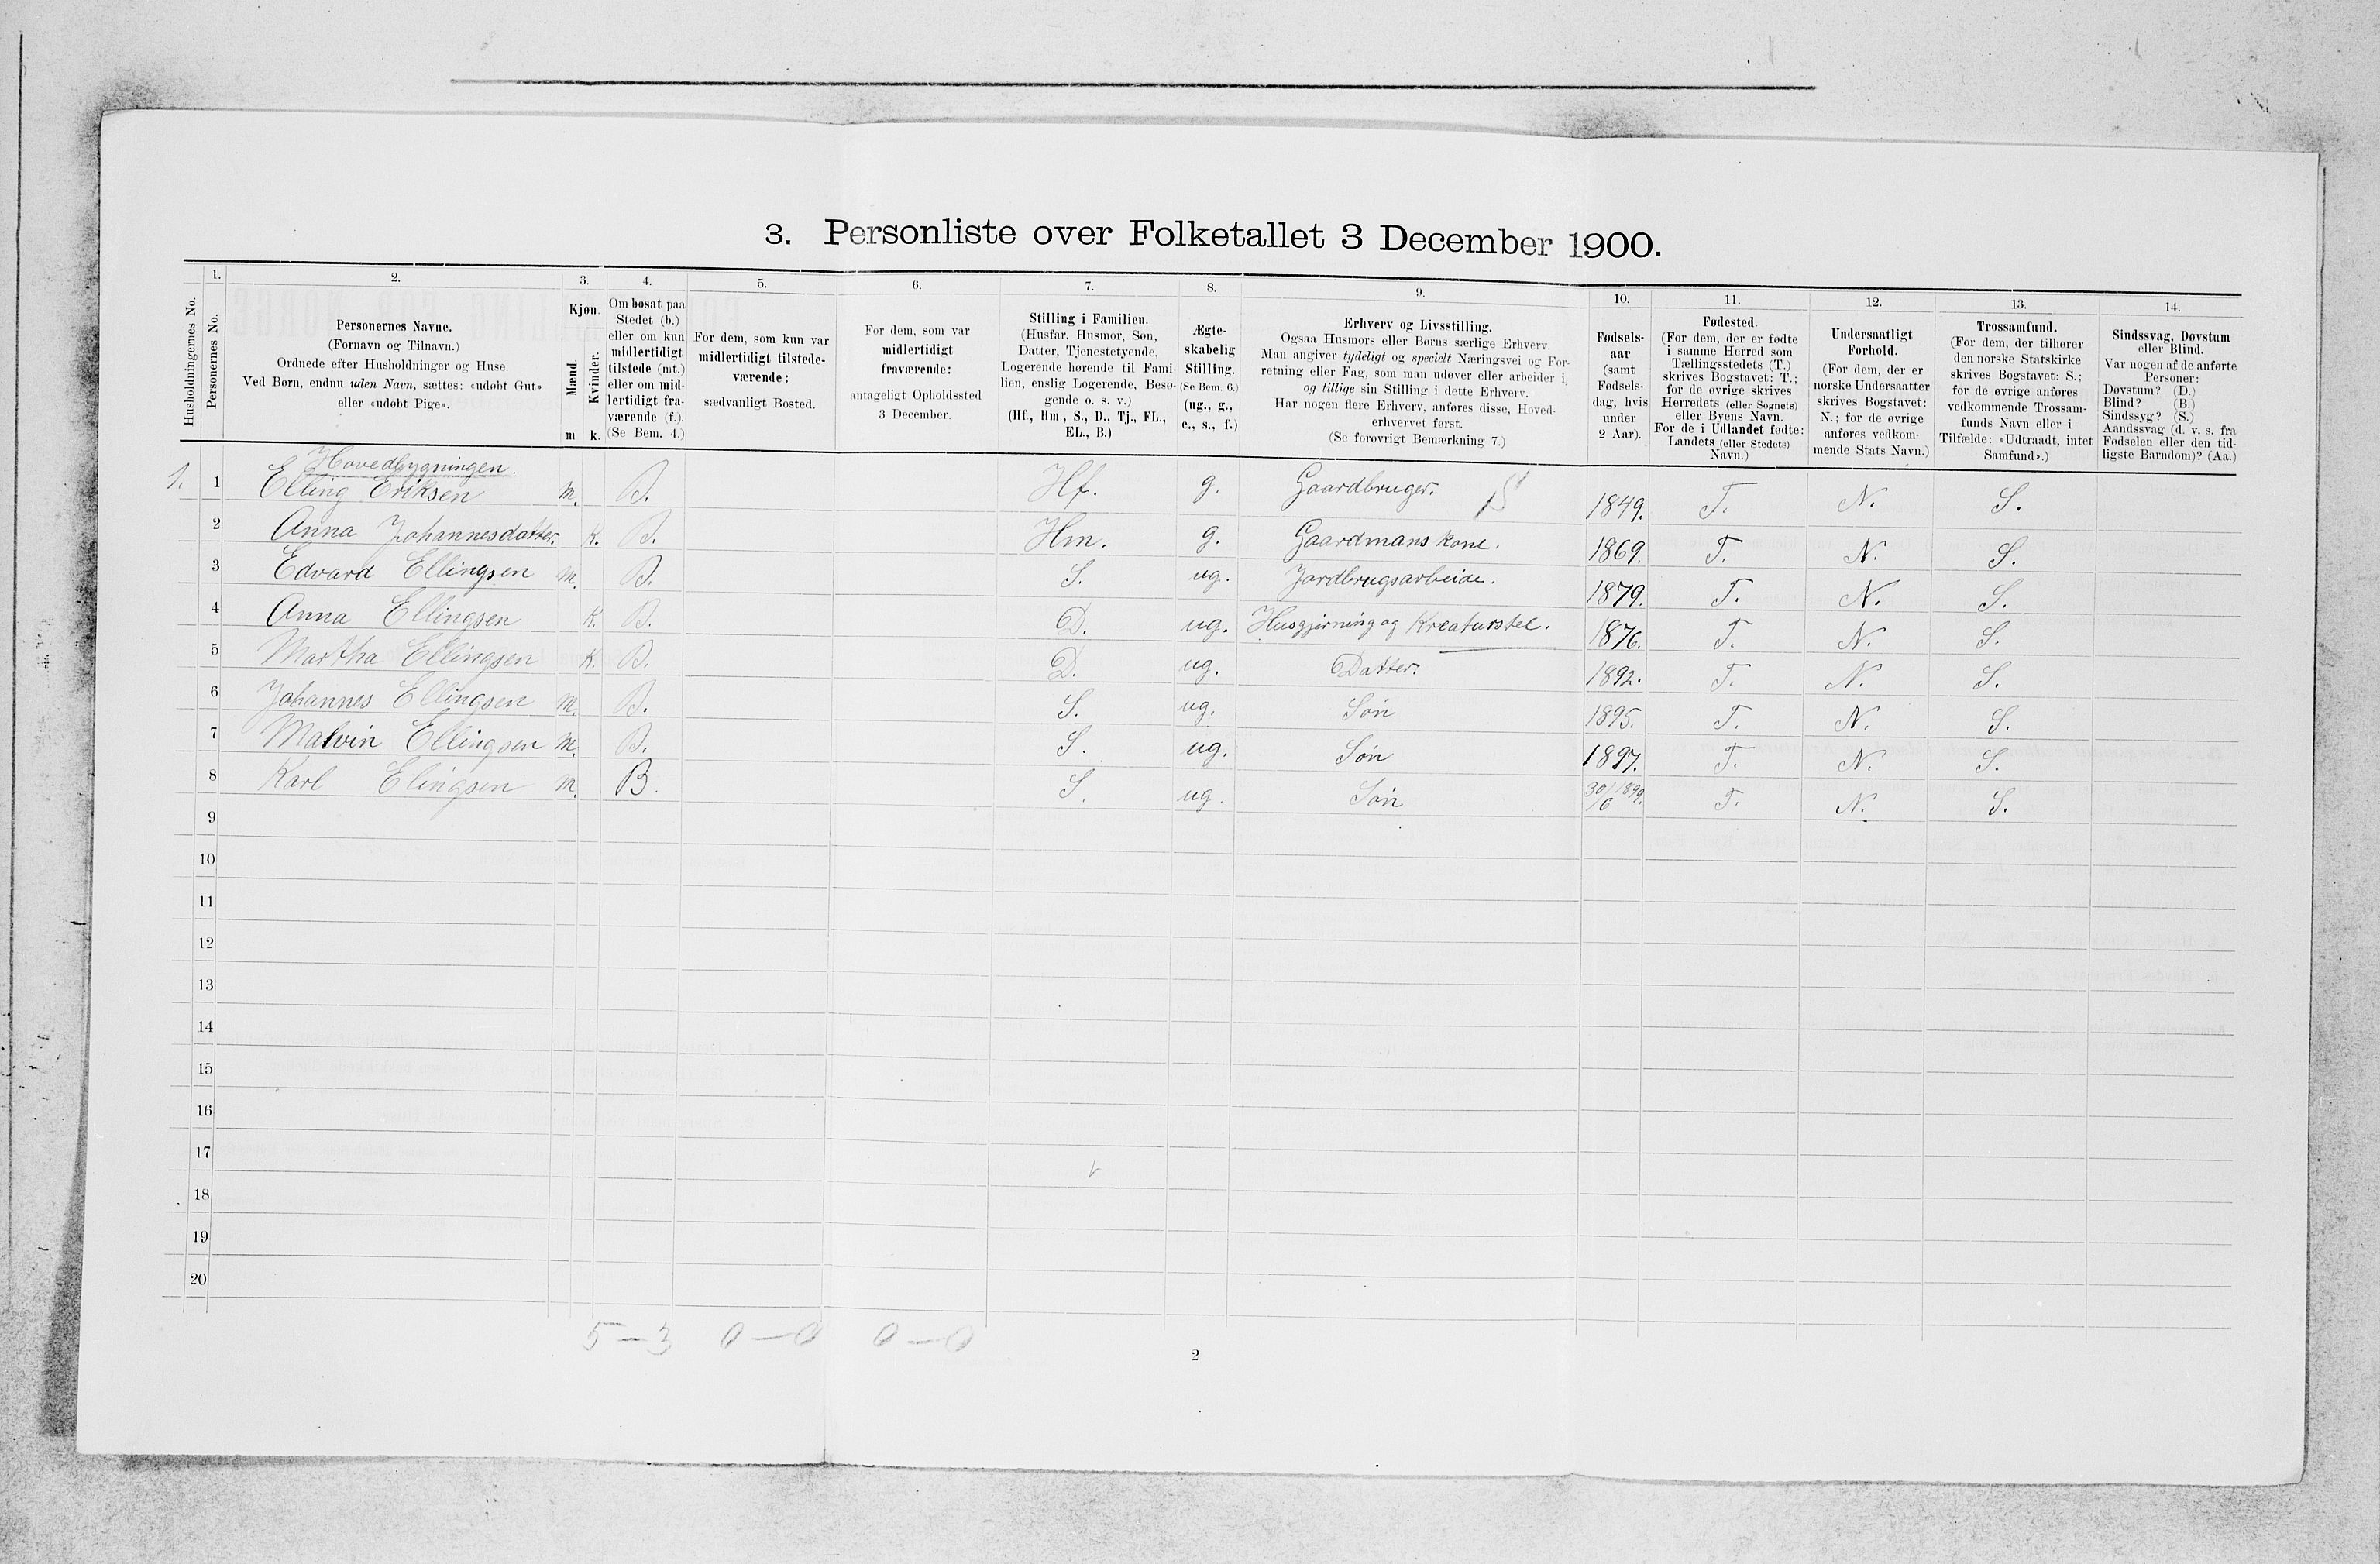 3. Personliste over Folketallet 3 December 1900.
1. 2. 3. 4. 5. 6. 7. 8. 9. 10. 11. 12. 13. 14.
Husholdningernes No.
Personernes No.
Personernes Navne.
(Fornavn og Tilnavn.)
Ordnede efter Husholdninger og Huse.
Ved Børn, endnu uden Navn, sættes: «udøbt Gut»
eller «udøbt Pige».
Kjøn.
Mænd.
Kvinder.
m k.
Om bosat paa
Stedet (b.)
eller om kun
midlertidigt
tilstede (mt.)
eller om mid-
lertidigt fra-
værende (f.).
(Se Bem. 4.)
For dem, som kun var
midlertidigt tilstede-
værende:
sædvanligt Bosted.
For dem, som var
midlertidigt
fraværende:
antageligt Opholdssted
3 December.
Stilling i Familien.
(Husfar, Husmor, Søn,
Datter, Tjenestetyende,
Logerende hørende til Fami-
lien, enslig Logerende, Besø-
gende o. s. v.)
(Hf., Hm., S., D., Tj., FL.,
EL., B.)
Ægte-
skabelig
Stilling.
(Se Bem. 6.)
(ug., g.,
e., s., f.)
Erhverv og Livsstilling.
Ogsaa Husmors eller Børns særlige Erhverv.
Man angiver tydeligt og specielt Næringsvei og For-
retning eller Fag, som man udøver eller arbeider i,
og tillige sin Stilling i dette Erhverv.
Har nogen flere Erhverv, anføres disse, Hoved-
erhvervet først.
(Se forøvrigt Bemærkning 7.)
Fødsels-
aar
(samt
Fødsels-
dag, hvis
under
2 Aar).
Fødested.
(For dem, der er fødte
i samme Herred som
Tællingsstedets (T.)
skrives Bogstavet: T.;
for de øvrige skrives
Herredets (eller Sognets)
eller Byens Navn.
For de i Udlandet fødte:
Landets (eller Stedets)
Navn.)
Undersaatligt
Forhold.
(For dem, der er
norske Undersaatter
skrives Bogstavet:
N.; for de øvrige
anføres vedkom-
mende Stats Navn.)
Trossamfund.
(For dem, der tilhører
den norske Statskirke
skrives Bogstavet: S.;
for de øvrige anføres
vedkommende Trossam-
funds Navn eller i
Tilfælde: «Udtraadt, intet
Samfund».)
Sindssvag, Døvstum
eller Blind.
Var nogen af de anførte
Personer:
Døvstum? (D.)
Blind? (B.)
Sindssyg? (S.)
Aandssvag (d. v. s. fra
Fødselen eller den tid-
ligste Barndom)? (Aa.)
Hovedbygningen.
1. 1 Elling Eriksen m. B. Hf. g. Gaardbruger. 1849. T. N. S.
2 Anna Johannesdatter. K. B. Hm. g. Gaardmans kone. 1869. T. N. S.
3 Edvard Ellingsen m. B. S. ug. Jordbrugsarbeide. 1879. T. N. S.
4 Anna Ellingsen K. B. D. ug. Husgjerning og Kreaturstel. 1876. T. N. S.
5 Martha Ellingsen K. B. D. ug. Datter. 1892. T. N. S.
6 Johannes Ellingsen m. B. S. ug. Søn 1895. T. N. S.
7 Malvin Ellingsen m. B. S. ug. Søn 1897. T. N. S.
8 Karl Elingsen m. B. S. ug. Søn 30/6 1899. T. N. S.
9
10
11
12
13
14
15
16
17
18
19
20
5 — 3 0 — 0 0 — 0
2